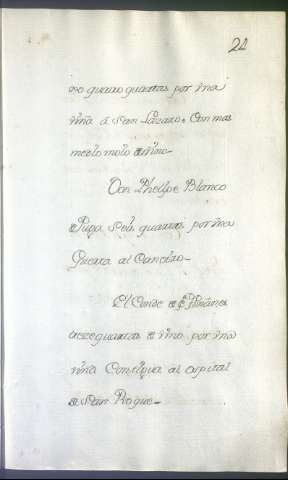 22
ro quatro quartas por vna
viña á San Lázaro. Con mas
medio moio de vino-
Don Phelipe Blanco
de Puga Seis quartas por vna
Guerta al Caneiro-
El Conde de
doze quartas de vino por vna
viña Contigua al ospital
de San Roque-